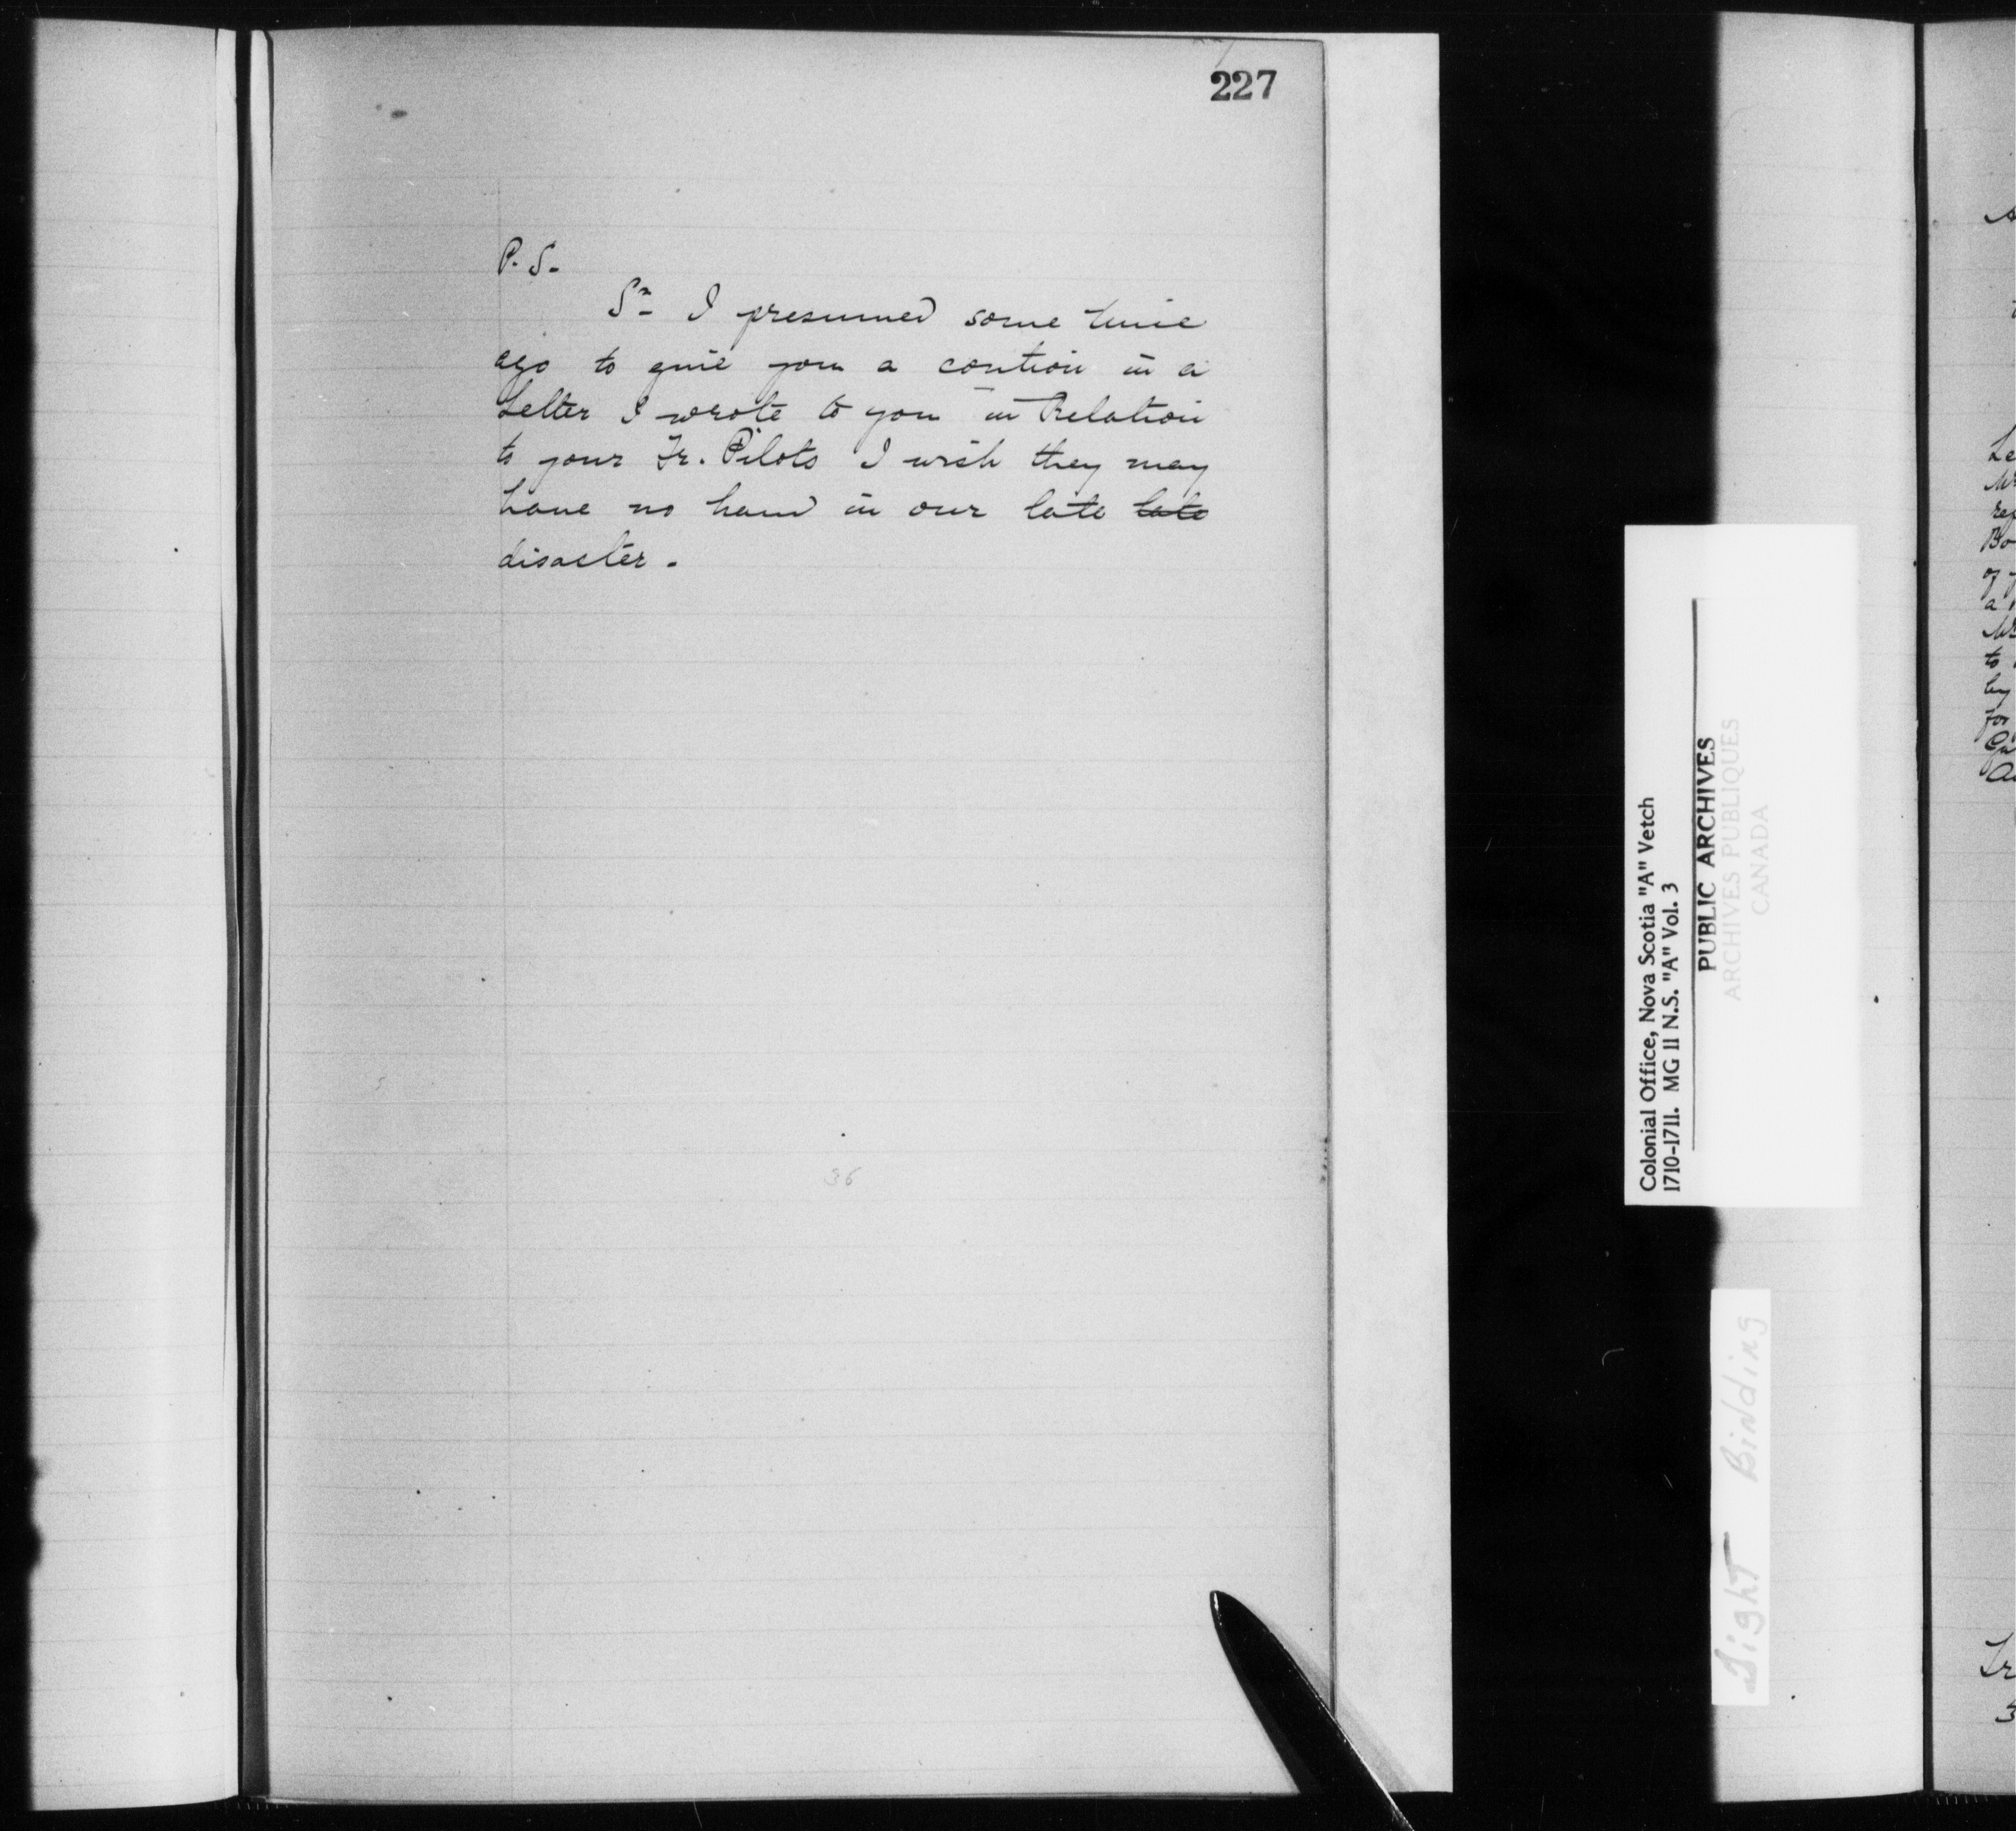 227
P. S.
Sr I presumed some time
ago to give you a caution in a
Letter I wrote to you in Relation
to your Fr. Pilots I wish they may
have no hand in our late late
disaster.
36
Colonial Office, Nova Scotia "A" Vetch
1710-1711. MG 11 N.S. "A" Vol. 3
PUBLIC ARCHIVES
ARCHIVES PUBLIQUES
CANADA
Tight Binding
Le